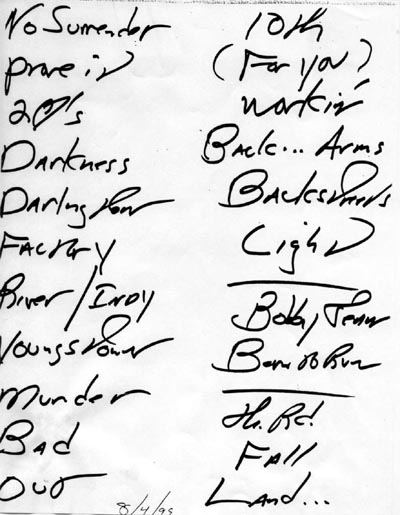 No Surrender
Prove it
2♥'s
Darkness
Darlington
Factory
River/Indy
Youngstown
Murder
Bad
Out
10th
(For You)
Workin'
Back... Arms
Backstreets
Light
Bobby Jean
Born to Run
Th. Rd.
Fall
Land...
8/4/99